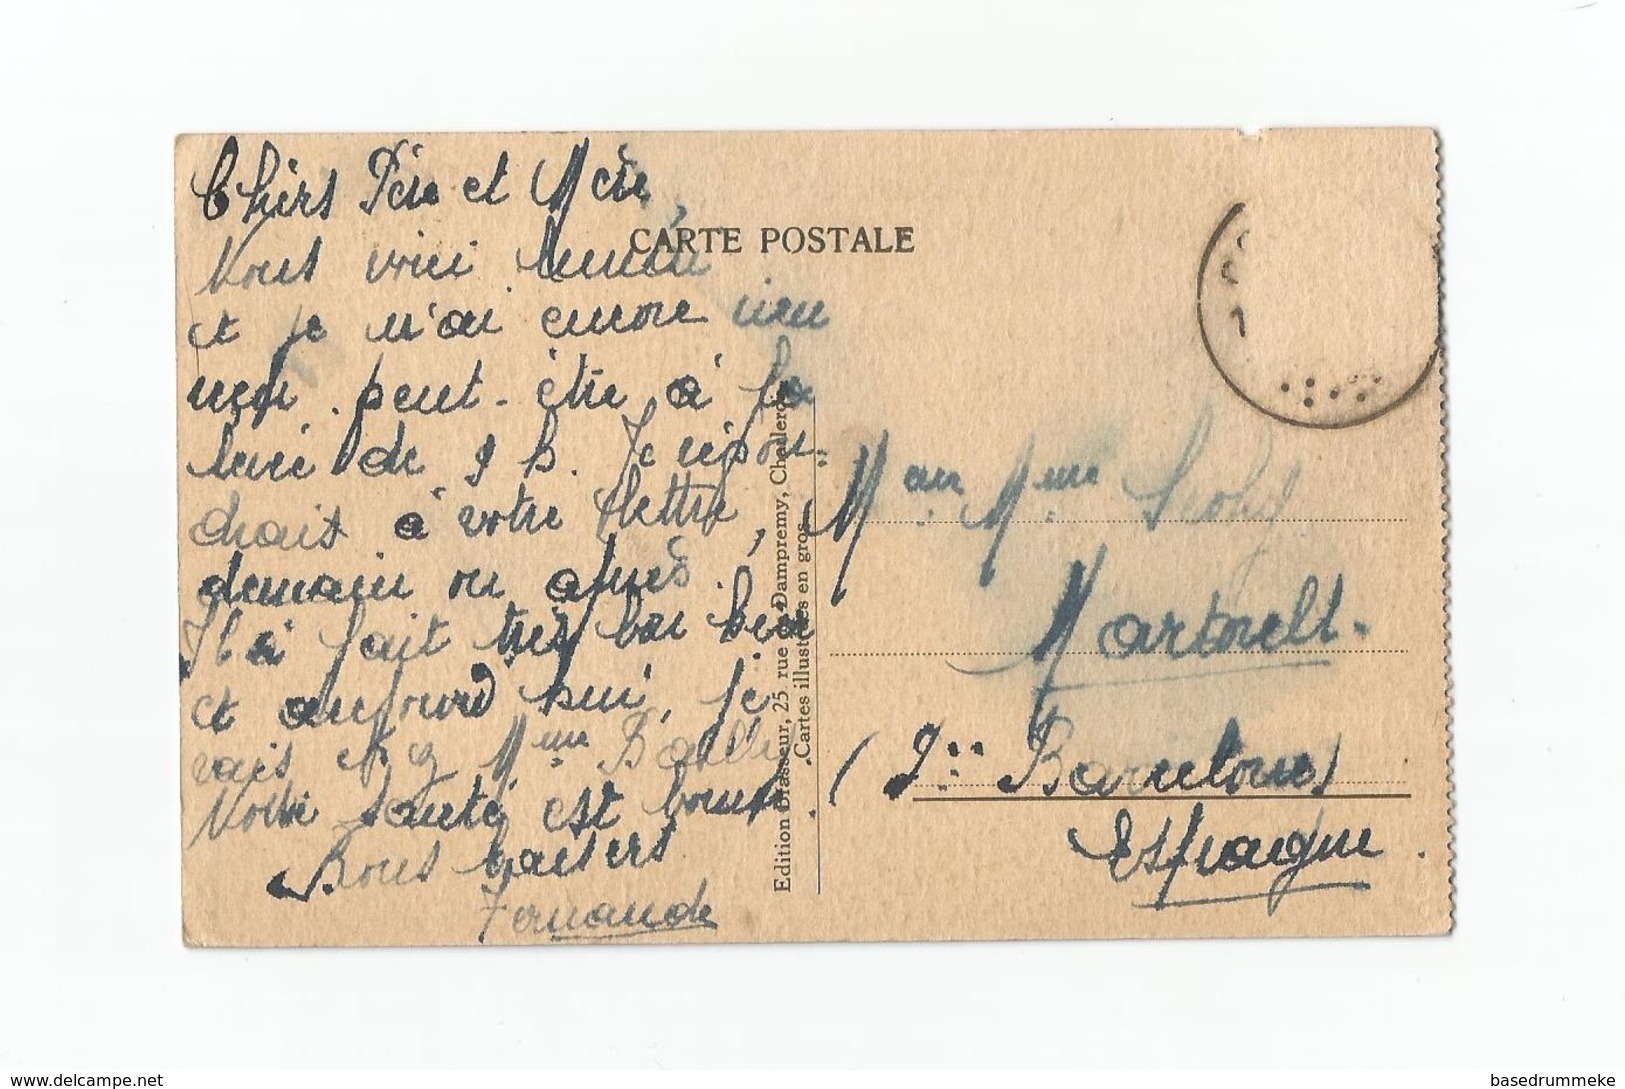 Chérs Père et Mère,
Nous voici lundi
et je n'ai encore rien
reçu. peut-être à la
levée de 9 h. Je répon-
drais à votre lettre,
demain ou après.
Il a fait très bon hier
et aujourd hui, je
vais chez Mme Bailly
Notre santé est bonne.
Bons baisers
Fernande
CARTE POSTALE
Edition Brasseur, 25 rue de Dampremy, Charleroi
Cartes illustrées en gros.
M. Mme
Martorell.
(Pce Barcelone)
Espagne.
basedrummeke
les-cpa.com